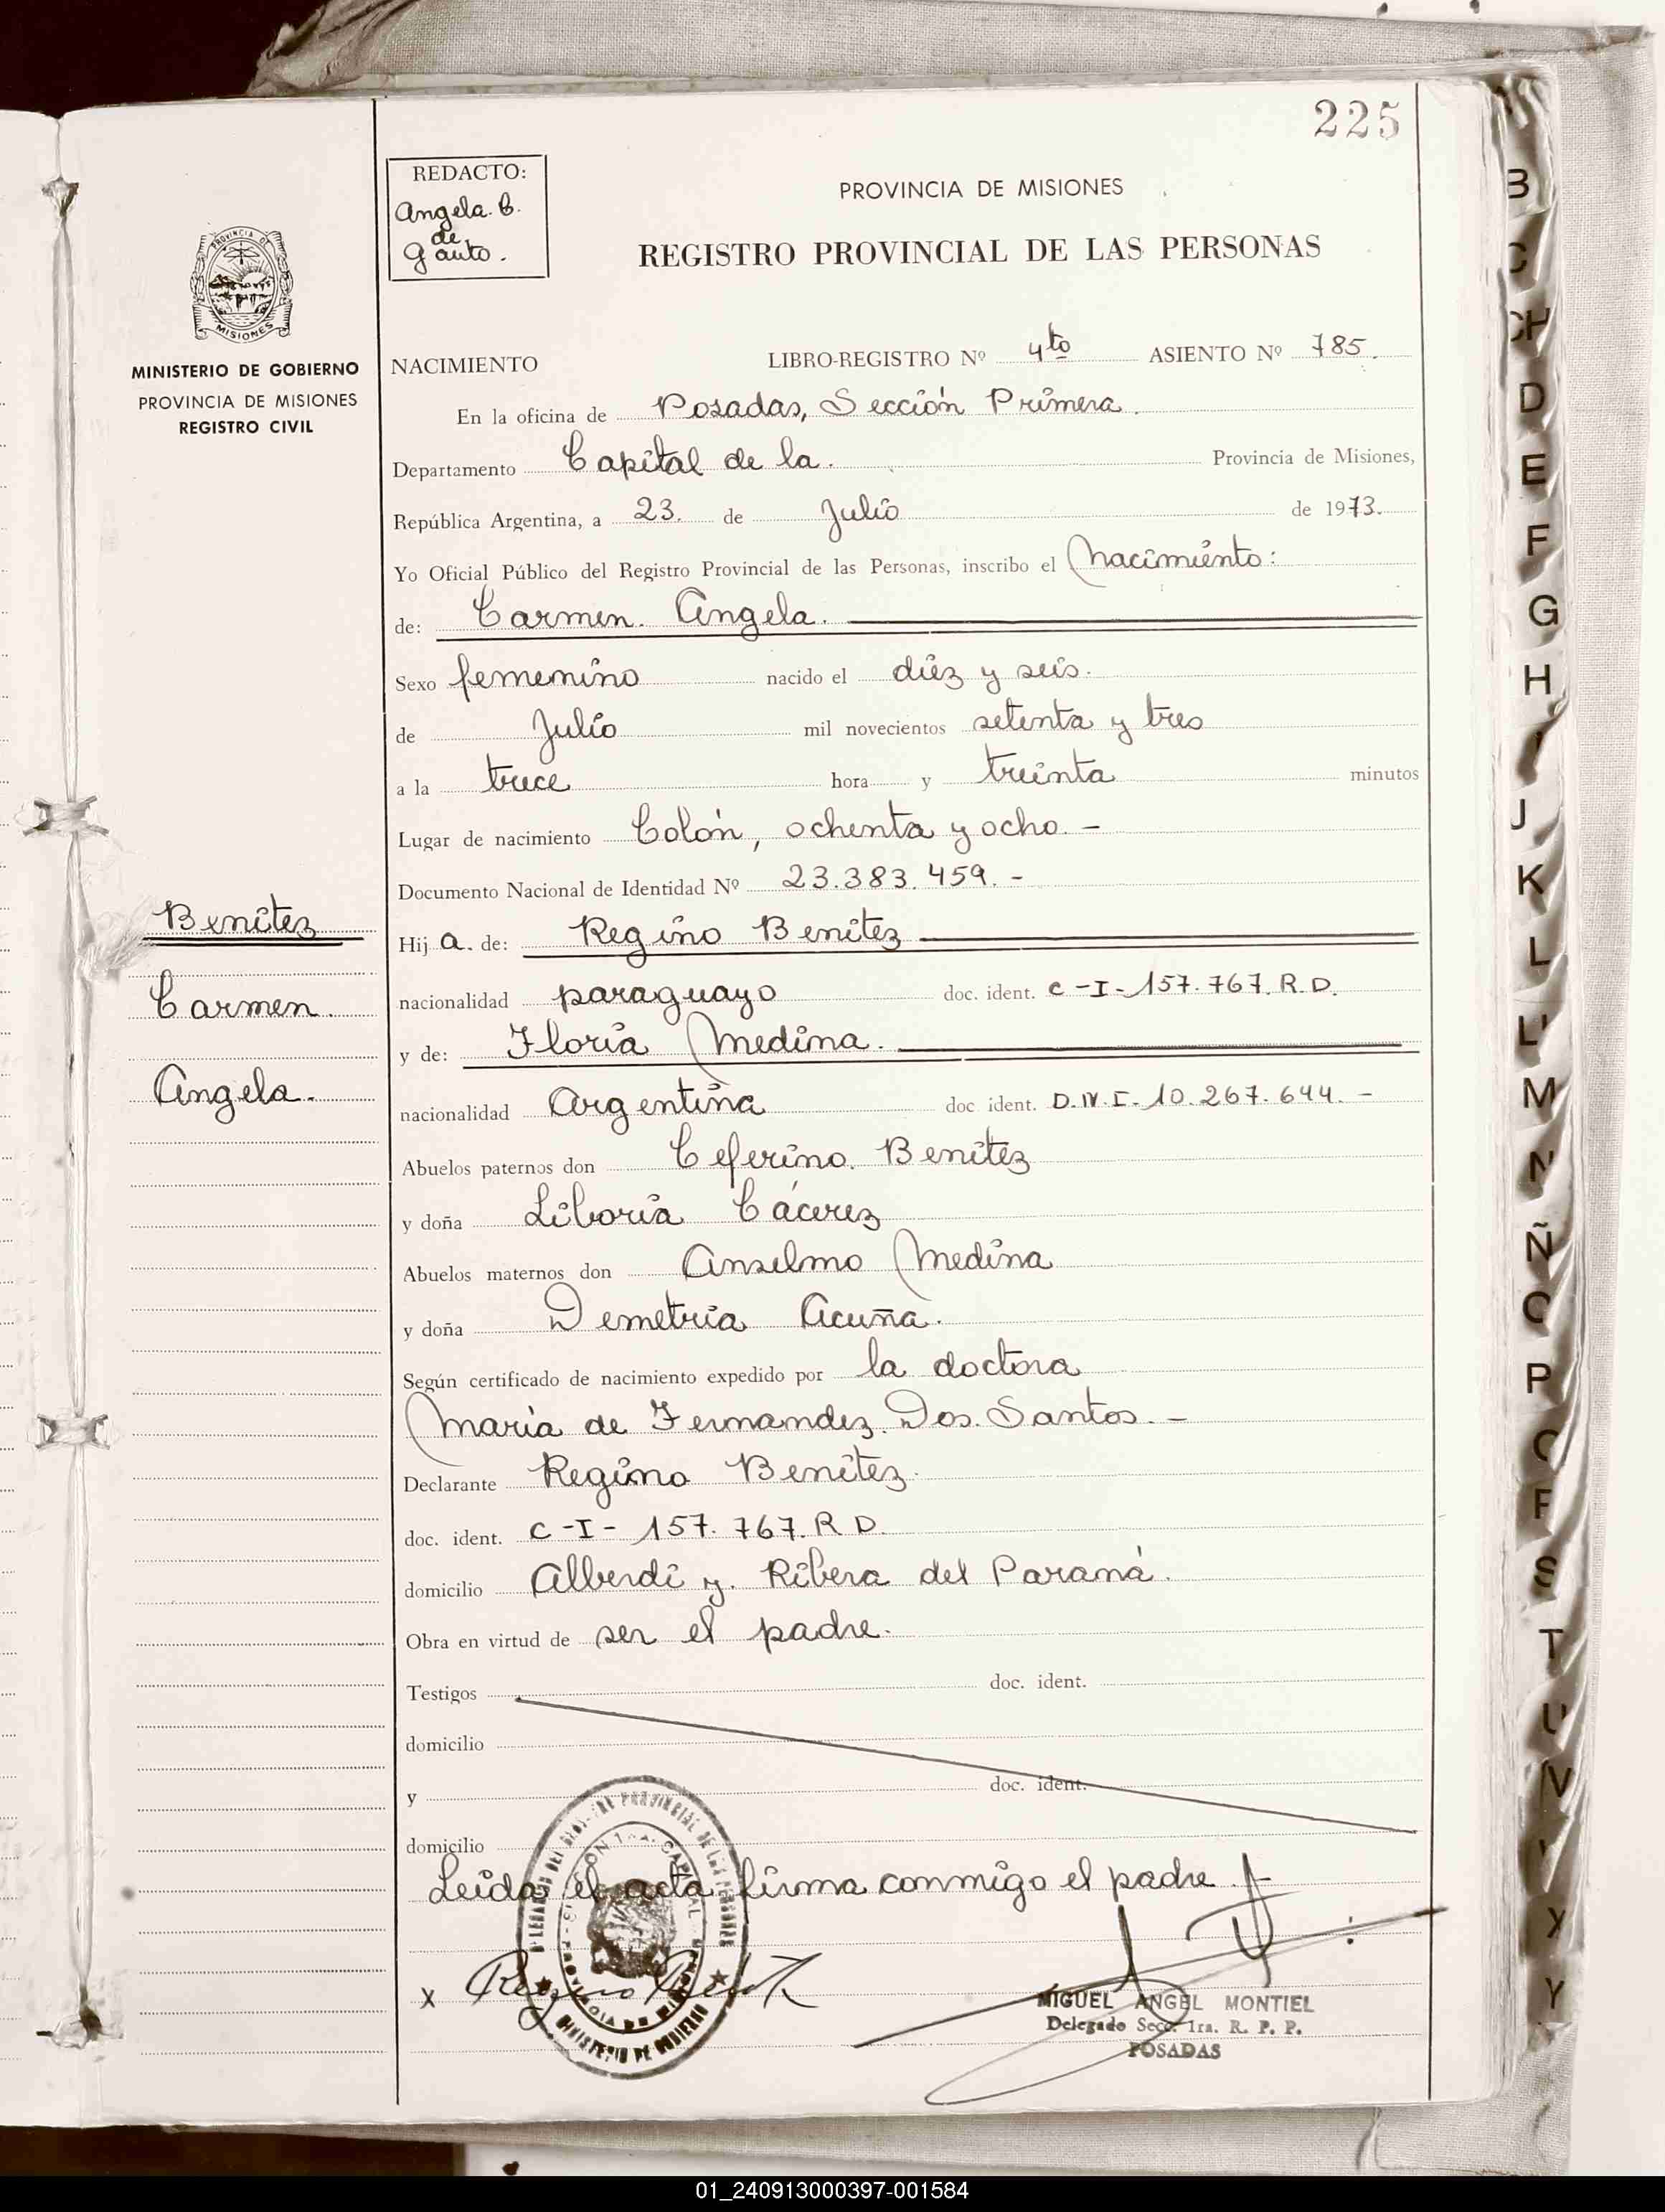 225
REDACTO:
Angela. C.
de
Gauto.
PROVINCIA DE MISIONES
REGISTRO PROVINCIAL DE LAS PERSONAS
PROVINCIA DE
MISIONES
MINISTERIO DE GOBIERNO
PROVINCIA DE MISIONES
REGISTRO CIVIL
NACIMIENTO LIBRO-REGISTRO Nº 4to ASIENTO Nº 785.
En la oficina de Posadas, Sección Primera.
Departamento Capital de la. Provincia de Misiones,
República Argentina, a 23. de Julio de 1973.
Yo Oficial Público del Registro Provincial de las Personas, inscribo el Nacimiento:
de: Carmen. Angela.
Sexo femenino nacido el diez y seis.
de Julio mil novecientos setenta y tres
a la trece hora y treinta minutos
Lugar de nacimiento Colón, ochenta y ocho. -
Documento Nacional de Identidad Nº 23.383.459. -
Benitez
Hij a. de: Regino Benitez
Carmen.
nacionalidad paraguayo doc. ident. C-I-157.767.R.D.
y de: Floria Medina.
Angela.
nacionalidad Argentina doc. ident. D.N.I-10.267.644. -
Abuelos paternos don Ceferino. Benitez
y doña Liboria Cácerez
Abuelos maternos don Anselmo Medina
y doña Demetria Acuña.
Según certificado de nacimiento expedido por la doctora
Maria de Fernandez. Dos. Santos. -
Declarante Regino Benitez.
doc. ident. C-I-157.767.R D.
domicilio Alberdi y. Ribera del Paraná.
Obra en virtud de ser el padre.
Testigos doc. ident.
domicilio
y doc. ident.
domicilio
Leida el acta firma conmigo el padre.
x Regino Benitez
MINISTERIO DE GOBIERNO
MIGUEL ANGEL MONTIEL
Delegado Secc. 1ra. R. P. P.
POSADAS
B
C
CH
D
E
F
G
H
I
J
K
L
LL
M
N
Ñ
O
P
Q
R
S
T
U
V
X
Y
01_240913000397-001584